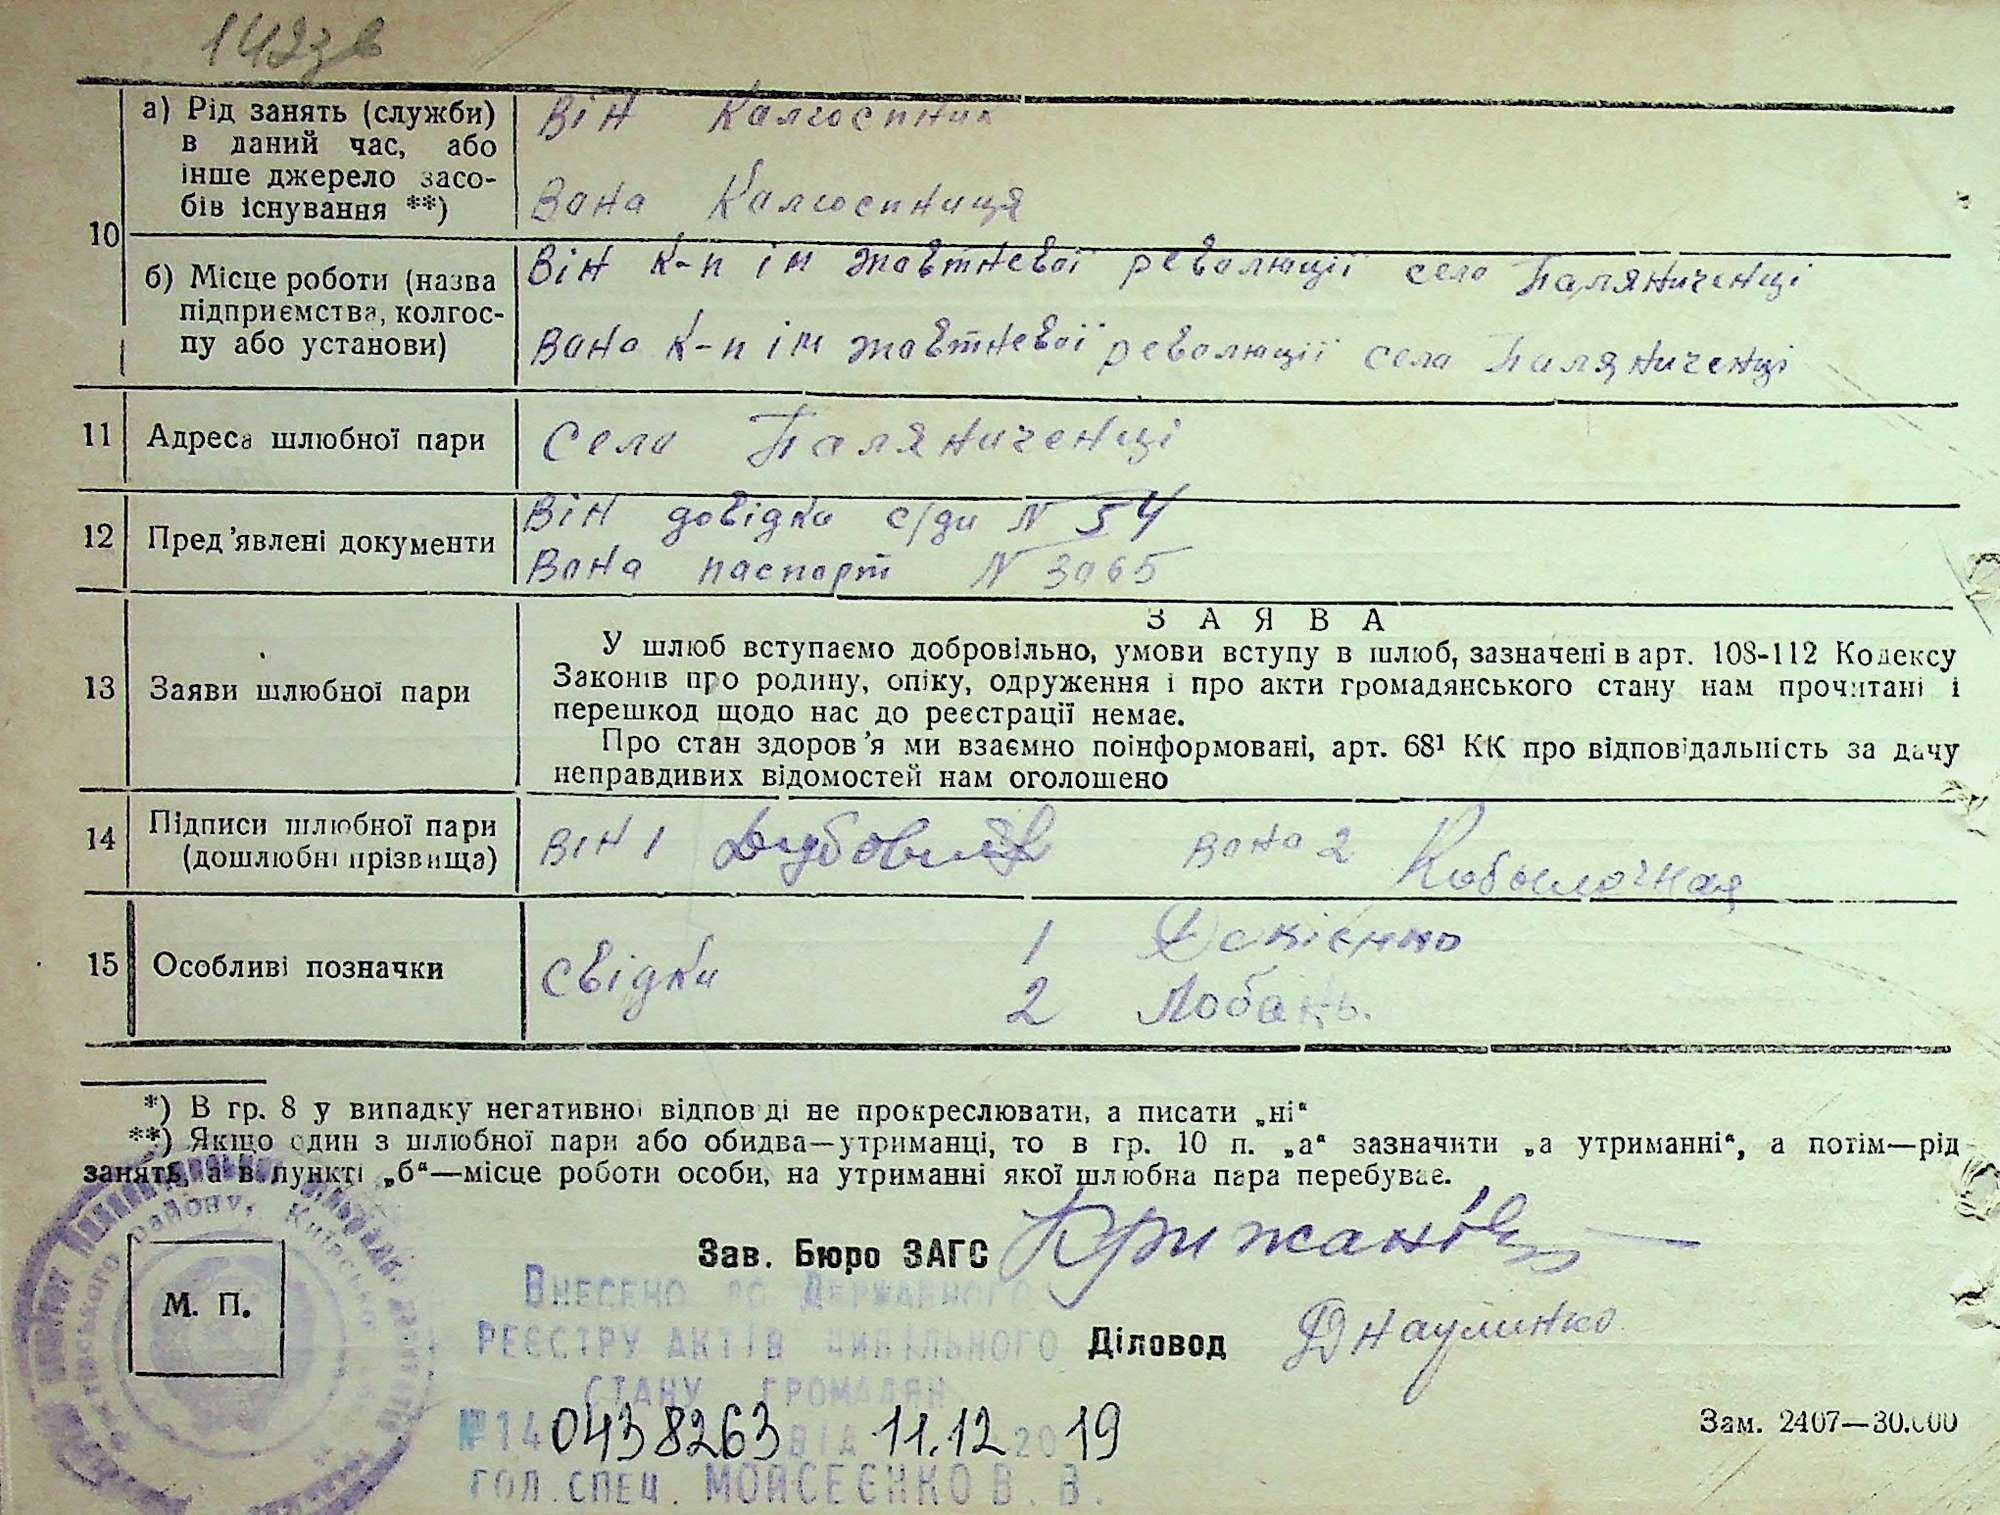 142зв
10
а) Рід занять (служби)
в даний час, або
інше джерело засо-
бів існування **)
Він Калгоспник
Вона Калгоспниця
б) Місце роботи (назва
підприємства, колгос-
пу або установи)
Він К-п ім жовтневої революції село Паляниченці
Вона К-п ім жовтневої революції село Паляниченці
11 Адреса шлюбної пари
Село Паляниченці
12 Пред'явлені документи
Він довідка с/ди № 54
Вона паспорт № 3065
13 Заяви шлюбної пари
ЗАЯВА
У шлюб вступаємо добровільно, умови вступу в шлюб, зазначені в арт. 108-112 Кодексу
Законів про родину, опіку, одруження і про акти громадянського стану нам прочитані і
перешкод щодо нас до реєстрації немає.
Про стан здоров'я ми взаємно поінформовані, арт. 68¹ КК про відповідальність за дачу
неправдивих відомостей нам оголошено
14 Підписи шлюбної пари
(дошлюбні прізвища)
Він 1 Дубовик Вона 2 Кобылочная
15 Особливі позначки
Свідки 1
2 Лобань.
*) В гр. 8 у випадку негативної відповіді не прокреслювати, а писати „ні“
**) Якщо один з шлюбної пари або обидва—утриманці, то в гр. 10 п. „а“ зазначити „а утриманні“, а потім—рід
занять, а в пункті „б“—місце роботи особи, на утриманні якої шлюбна пара перебуває.
району, Київської
М. П.
Зав. Бюро ЗАГС
Діловод
Внесено до Державного
реєстру актів цивільного
стану громадян
№ 140438263 від 11.12 2019
гол. спец. Мойсеєнко В. В.
Зам. 2407—30.000